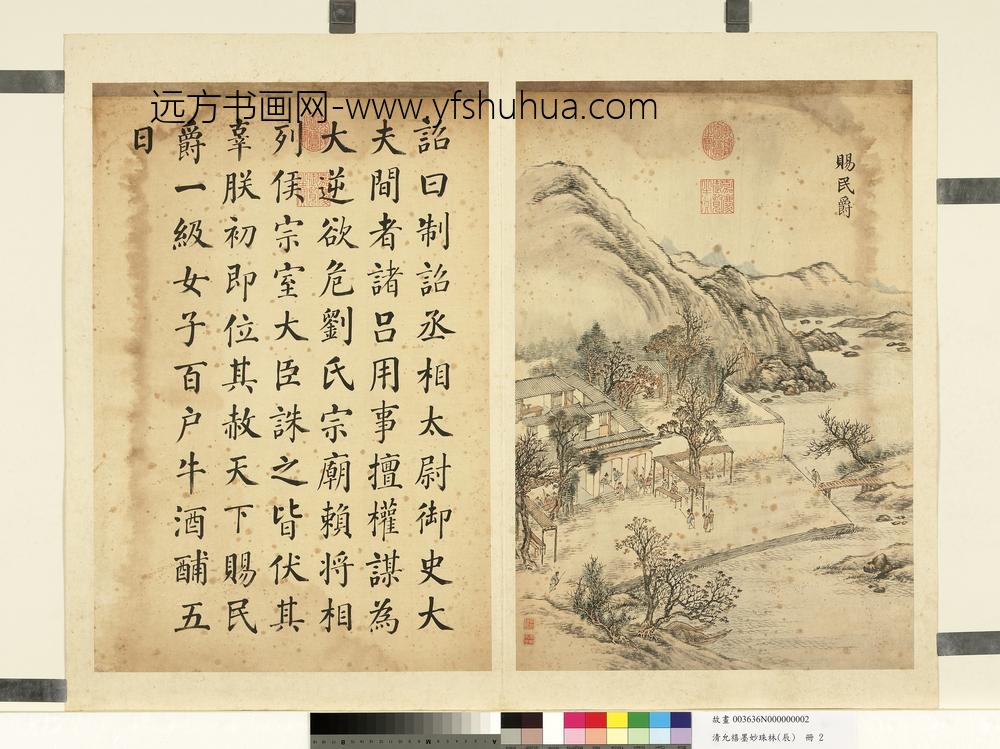 远方书画网-www.yfshuhua.com
賜民爵
詔曰制詔丞相太尉御史大
夫間者諸呂用事擅權謀為
大逆欲危劉氏宗廟賴将相
列侯宗室大臣誅之皆伏其
辜朕初即位其赦天下賜民
爵一級女子百户牛酒酺五
日
故畫 003636N000000002
清允禧墨妙珠林(辰) 冊 2